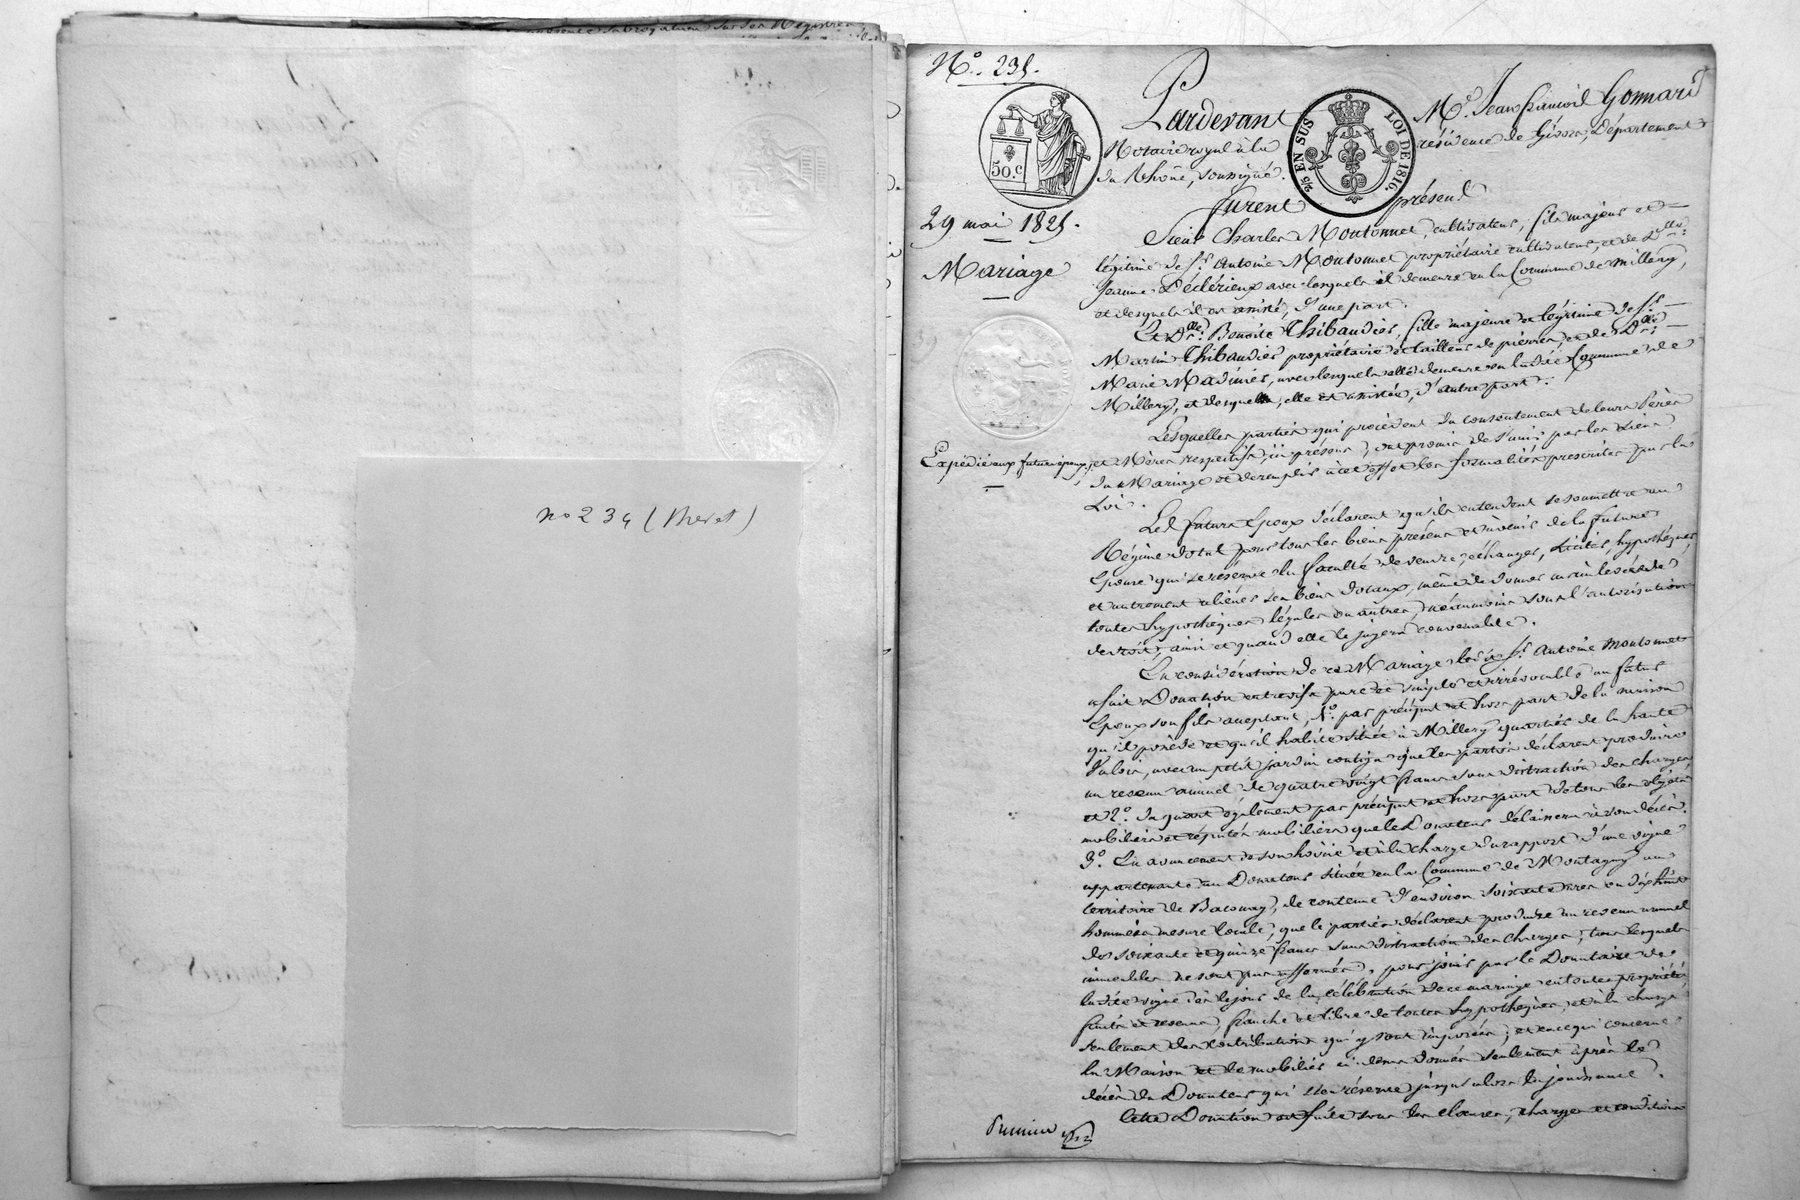 no 234 (Brevet)
N.° 235.
50.c
2/5 EN SUS
LOI DE 1816.
29 mai 1825.
Mariage
Expédié aux futurs époux
Pardevant M.e Jean François Gonnard
Notaire royal à la résidence de Givors, Département
du Rhône, soussigné.
furent présens
Sieur Charles Moutonnet, cultivateur, fils majeur et
légitime de S.r Antoine Moutonnet propriétaire cultivateur, et de D.lle
Jeanne Decléricux avec lesquels il demeure en la Commune de Millery,
et desquels il est assisté, d'une part.
Et D.lle Benoite Thibaudier, fille majeure et légitime de S.r
Martin Thibaudier propriétaire et tailleur de pierres, et de D.lle
Marie Madinier, avec lesquels elle demeure en ladite Commune de
Millery, et desquels, elle est assistée, d'autre part.
Lesquelles parties qui procèdent du consentement de leurs Pères
et Mères respectifs, ici présens, ont promis de s'unir par les liens
du Mariage et de remplir à cet effet les formalités prescrites par la
Loi.
Les futurs Epoux déclarent qu'ils entendent se soumettre au
Régime dotal pour tous les biens présens et à venir de la future
Epouse qui se réserve la faculté de vendre, échanger, liciter, hypothéquer,
et autrement aliéner ses biens dotaux, même de donner mainlevée de
toutes hypothèques légales ou autres, néanmoins sous l'autorisation
de droit, ainsi et quand elle le jugera convenable.
En considération de ce Mariage ledit S.r Antoine Moutonnet
a fait Donation entrevifs pure et simple et irrévocable au futur
Epoux son fils acceptant, 1.° par préciput et hors part de la maison
qu'il possède et qu'il habite située à Millery quartier de la haute
Valois, avec un petit jardin contigu que les parties déclarent produire
un revenu annuel de quatre vingt francs sans distraction des charges,
et 2.° du quart également par préciput et hors part de tous les objets
mobiliers et réputés mobiliers que le Donateur délaissera à son décès.
3.° En avancement de son hoirie et à la charge du rapport d'une vigne
appartenante au Donateur située en la Commune de Montagny au
territoire de Bacounay, de contenue d'environ soixante ares ou dix huit
hommées mesure locale, que les parties déclarent produire un revenu annuel
de soixante et quinze francs sans distraction des charges, tous lesquels
immeubles ne sont pas affermés, pour jouir par le Donataire de
ladite vigne dès le jour de la célébration de ce mariage en toute propriété,
fruits et revenus, franche et libre de toutes hypothèques, et à la charge
seulement des contributions qui y sont imposées, et en ce qui concerne
la Maison et le mobilier ci-dessus donnés seulement après le
décès du Donateur qui s'en réserve jusqu'alors la jouissance.
Cette Donation est faite sous les clauses, charges et conditions
Premier